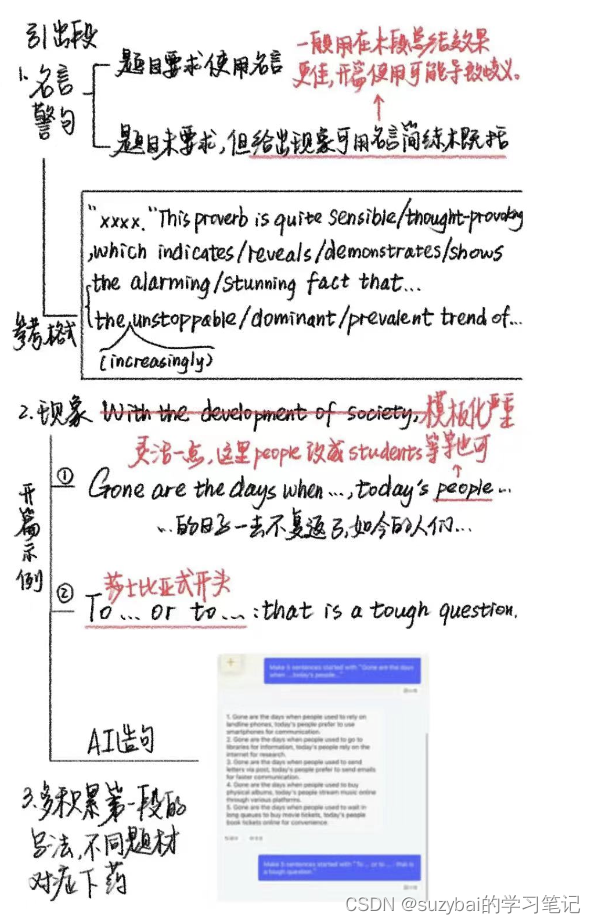 引出段
1.名言警句
题目要求使用名言
一般用在末段总结效果
更佳,开篇使用可能导致歧义。
题目未要求,但给出现象可用名言简练概括
参考格式
"xxxx."This proverb is quite sensible/thought-provoking
,which indicates/reveals/demonstrates/shows
the alarming/stunning fact that...
the unstoppable/dominant/prevalent trend of...
(increasingly)
2.现象 With the development of society, 模板化严重
灵活一点,这里people改成students等等也可
开篇示例
① Gone are the days when ...,today's people...
...的日子一去不复返了,如今的人们...
莎士比亚式开头
② To ... or to ... :that is a tough question.
AI造句
Make 5 sentences started with "Gone are the days
when ...,today's people..."
1. Gone are the days when people used to rely on
landline phones, today's people prefer to use
smartphones for communication.
2. Gone are the days when people used to go to
libraries for information, today's people rely on the
internet for research.
3. Gone are the days when people used to send
letters via post, today's people prefer to send emails
for faster communication.
4. Gone are the days when people used to buy
physical albums, today's people stream music online
through various platforms.
5. Gone are the days when people used to wait in
long queues to buy movie tickets, today's people
book tickets online for convenience.
Make 5 sentences started with "To ... or to ... : that is
a tough question."
3.多积累第一段的
写法,不同题材
对症下药
CSDN @suzybai的学习笔记